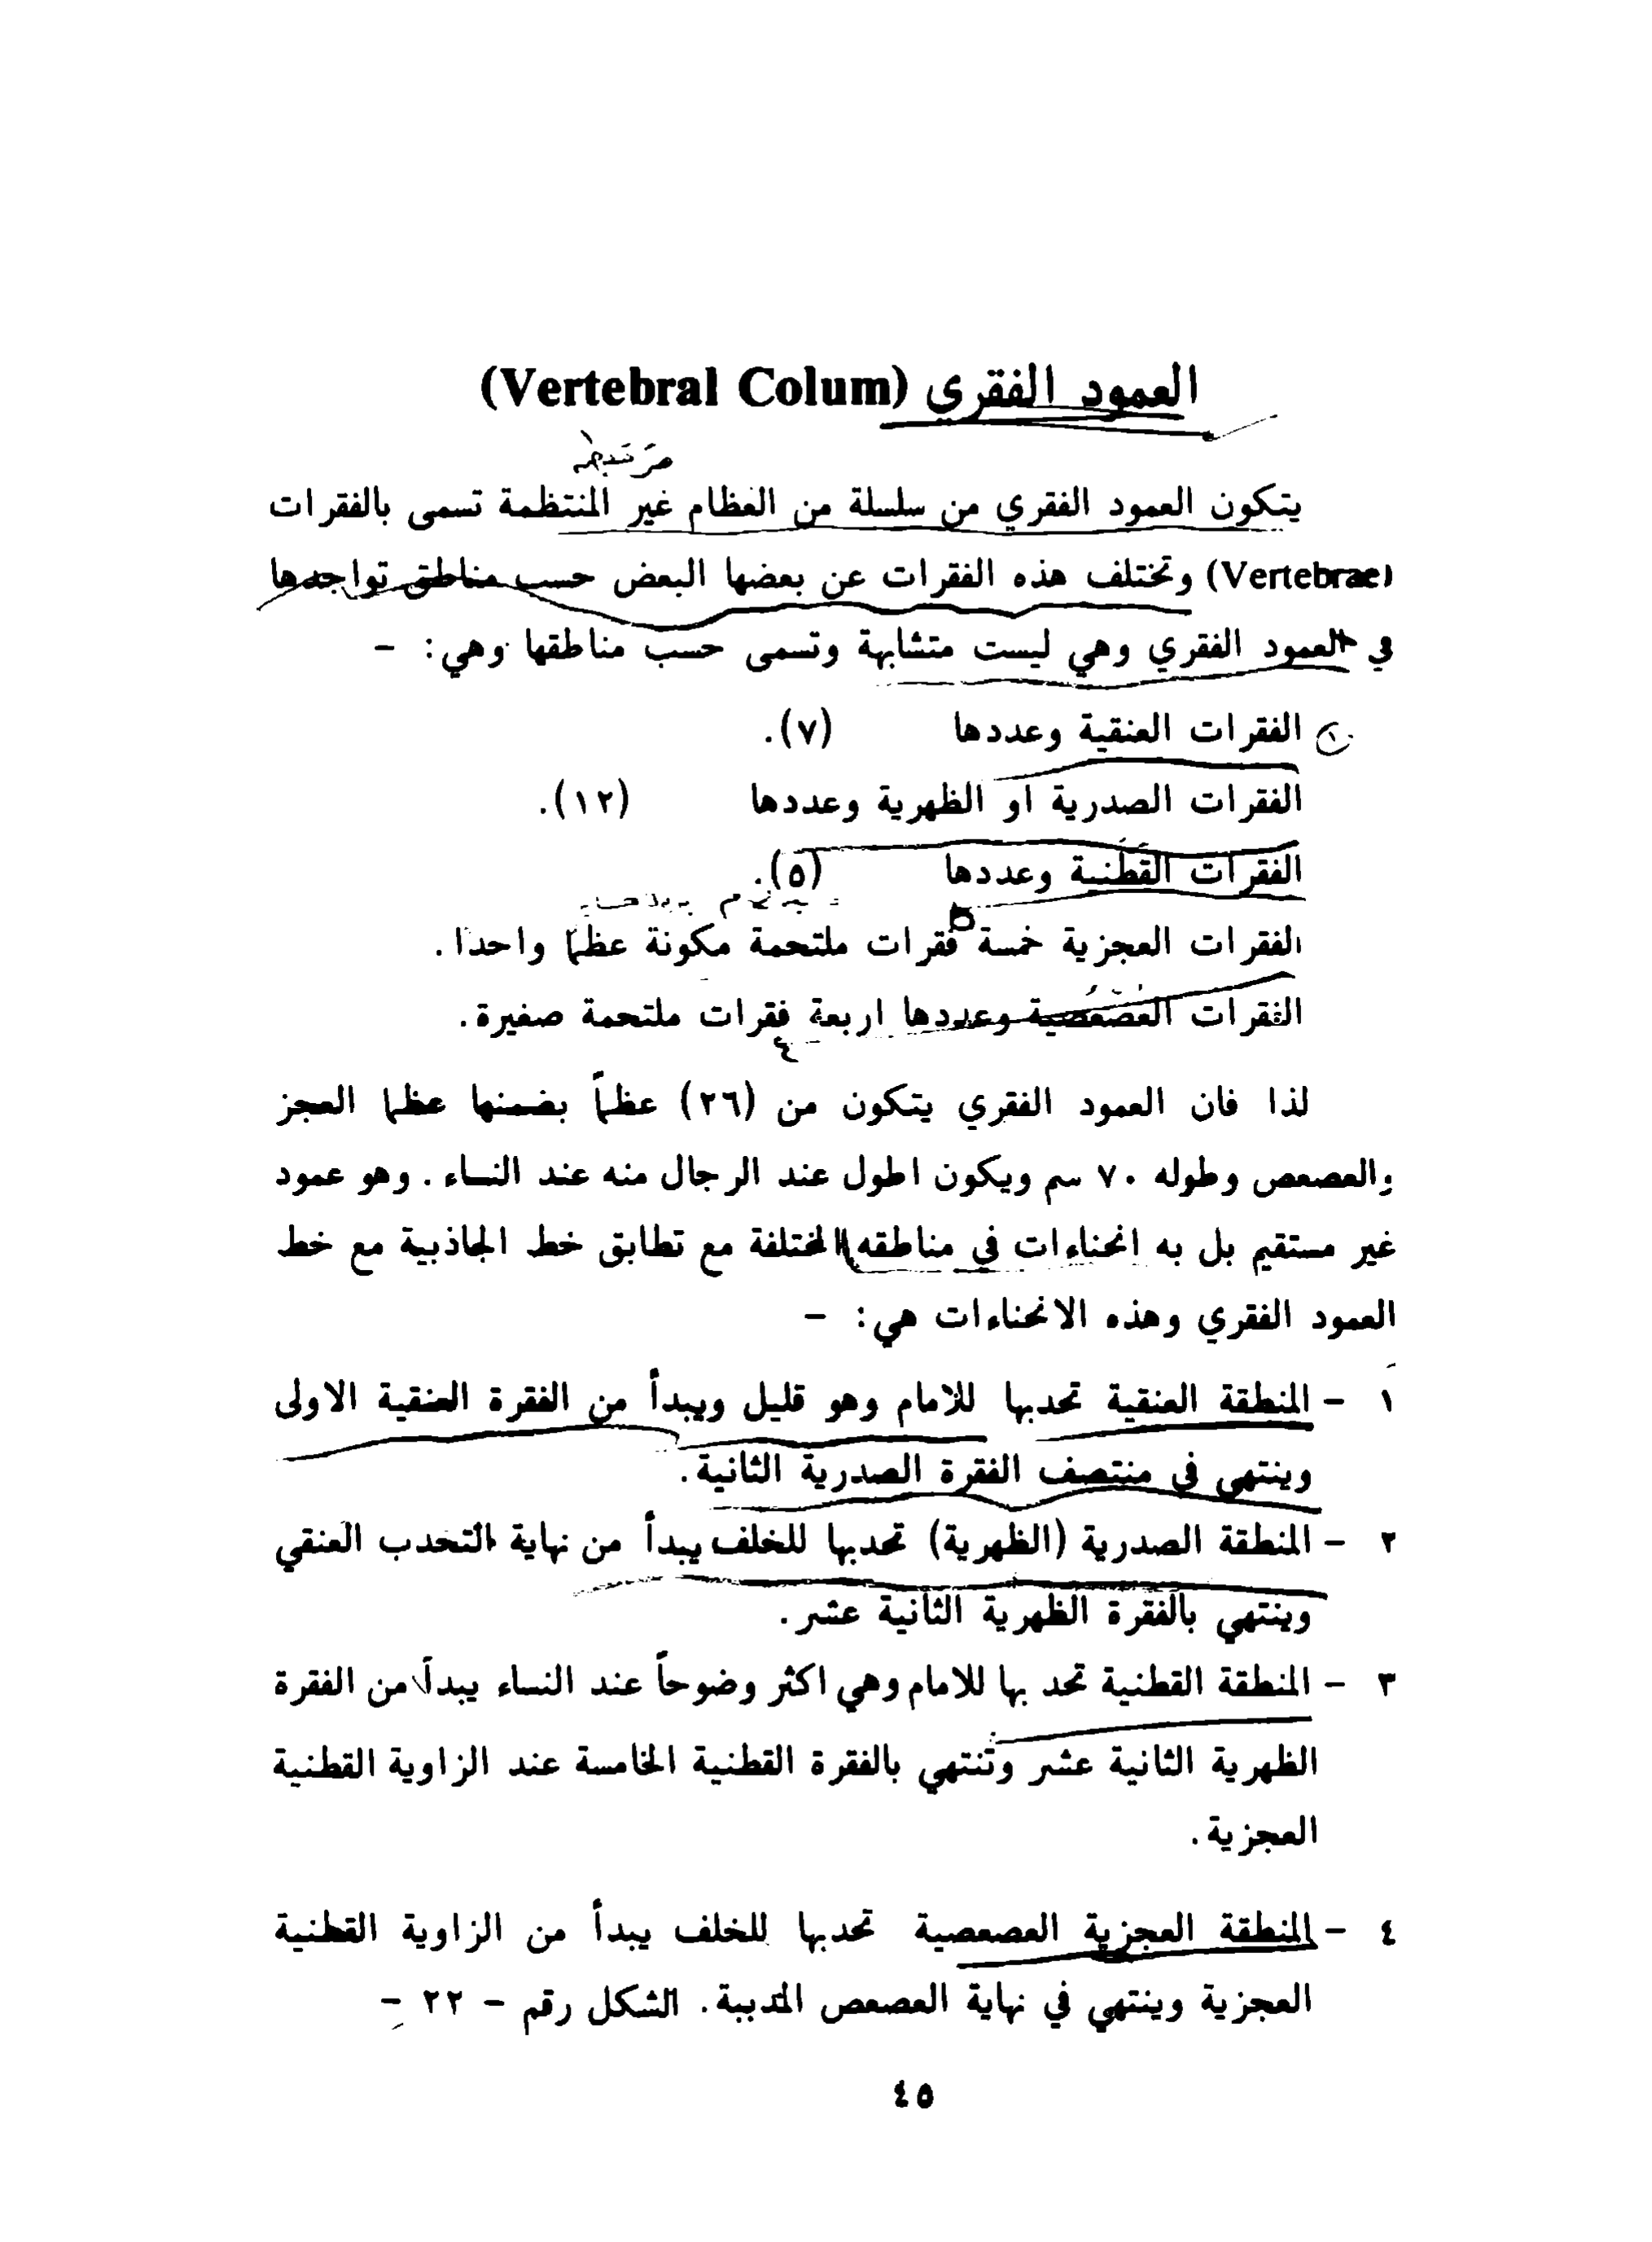 العمود الفقري (Vertebral Colum)
يتكون العمود الفقري من سلسلة من العظام غير المنتظمة تسمى بالفقرات
(Vertebrae) وتختلف هذه الفقرات عن بعضها البعض حسب مناطق تواجدها
في العمود الفقري وهي ليست متشابهة وتسمى حسب مناطقها وهي: -
١ الفقرات العنقية وعددها (٧).
الفقرات الصدرية او الظهرية وعددها (١٢).
الفقرات القطنية وعددها (٥).
الفقرات العجزية خمسة فقرات ملتحمة مكونة عظما واحدا.
٥
الفقرات العصعصية وعددها اربعة فقرات ملتحمة صغيرة.
٤
لذا فان العمود الفقري يتكون من (٢٦) عظماً بضمنها عظما العجز
والعصعص وطوله ٧٠ سم ويكون اطول عند الرجال منه عند النساء. وهو عمود
غير مستقيم بل به انحناءات في مناطقه المختلفة مع تطابق خط الجاذبية مع خط
العمود الفقري وهذه الانحناءات هي: -
١ - المنطقة العنقية تحدبها للامام وهو قليل ويبدأ من الفقرة العنقية الاولى
وينتهي في منتصف الفقرة الصدرية الثانية.
٢ - المنطقة الصدرية (الظهرية) تحدبها للخلف يبدأ من نهاية التحدب العنقي
وينتهي بالفقرة الظهرية الثانية عشر.
٣ - المنطقة القطنية تحد بها للامام وهي اكثر وضوحاً عند النساء يبدأ من الفقرة
الظهرية الثانية عشر وتنتهي بالفقرة القطنية الخامسة عند الزاوية القطنية
العجزية.
٤ - المنطقة العجزية العصعصية تحدبها للخلف يبدأ من الزاوية القطنية
العجزية وينتهي في نهاية العصعص المدببة. الشكل رقم - ٢٢ -
٤٥